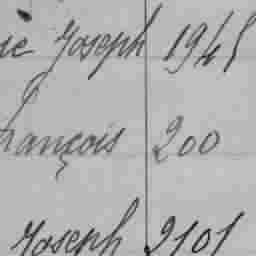 ie Joseph 1945
rançois 200
Joseph 2101